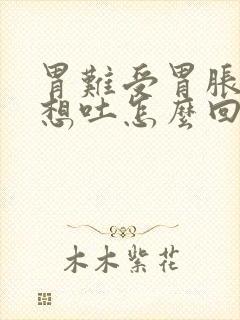 胃難受胃脹
想吐怎麼回
木木紫花